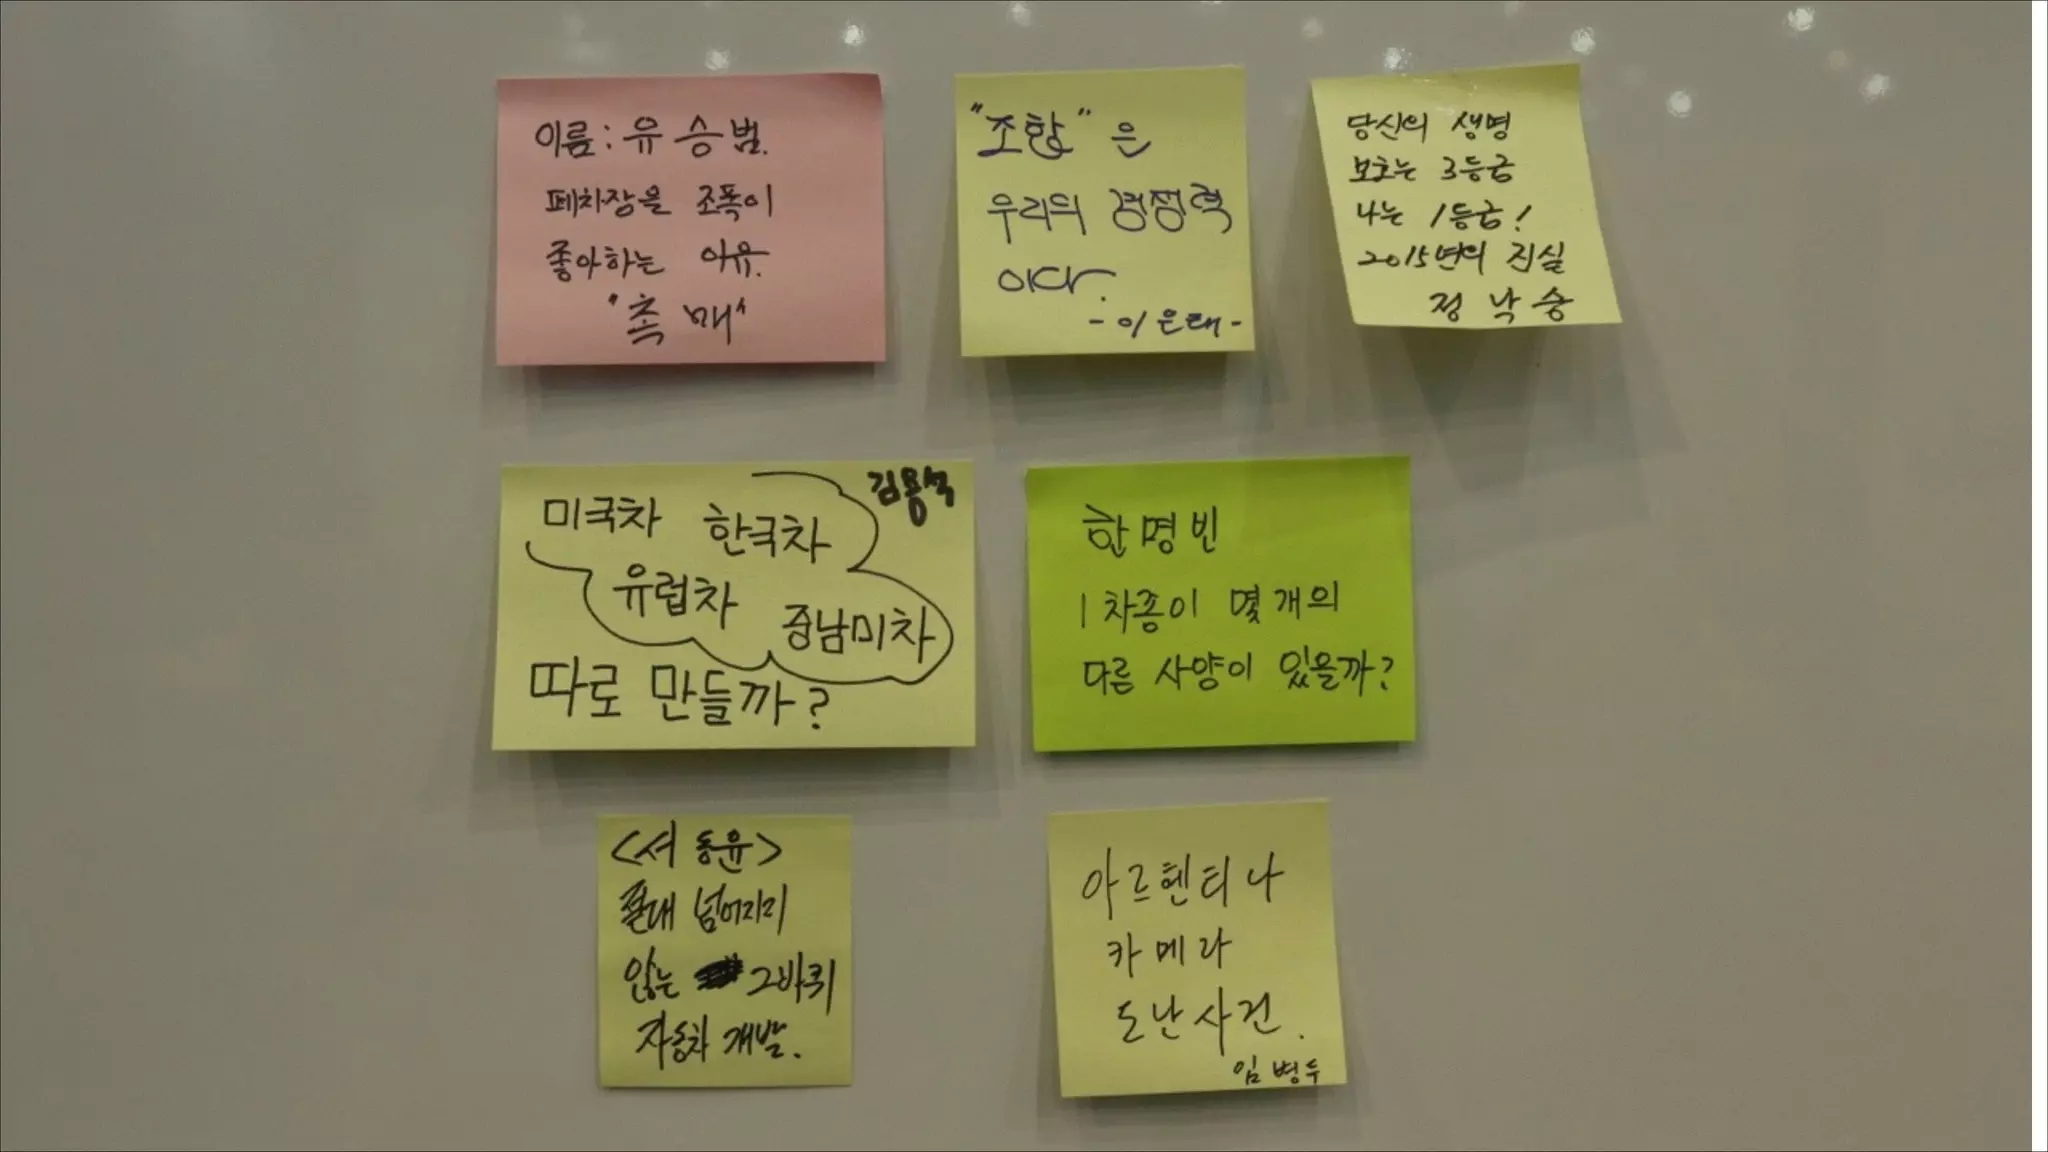 이름: 유승범.
폐차장을 조폭이
좋아하는 이유.
"촉매"
"조합"은
우리의 경쟁력
이다.
-이은태-
당신의 생명
보호는 3등급
나는 1등급!
2015년의 진실
정낙승
김용석
미국차 한국차
유럽차 중남미차
따로 만들까?
한명빈
1차종이 몇개의
다른 사양이 있을까?
<서동윤>
절대 넘어지지
않는 2바퀴
자동차 개발.
아르헨티나
카메라
도난사건.
임병두